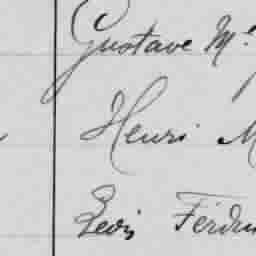 Gustave M.
Henri M
Levis Ferdin